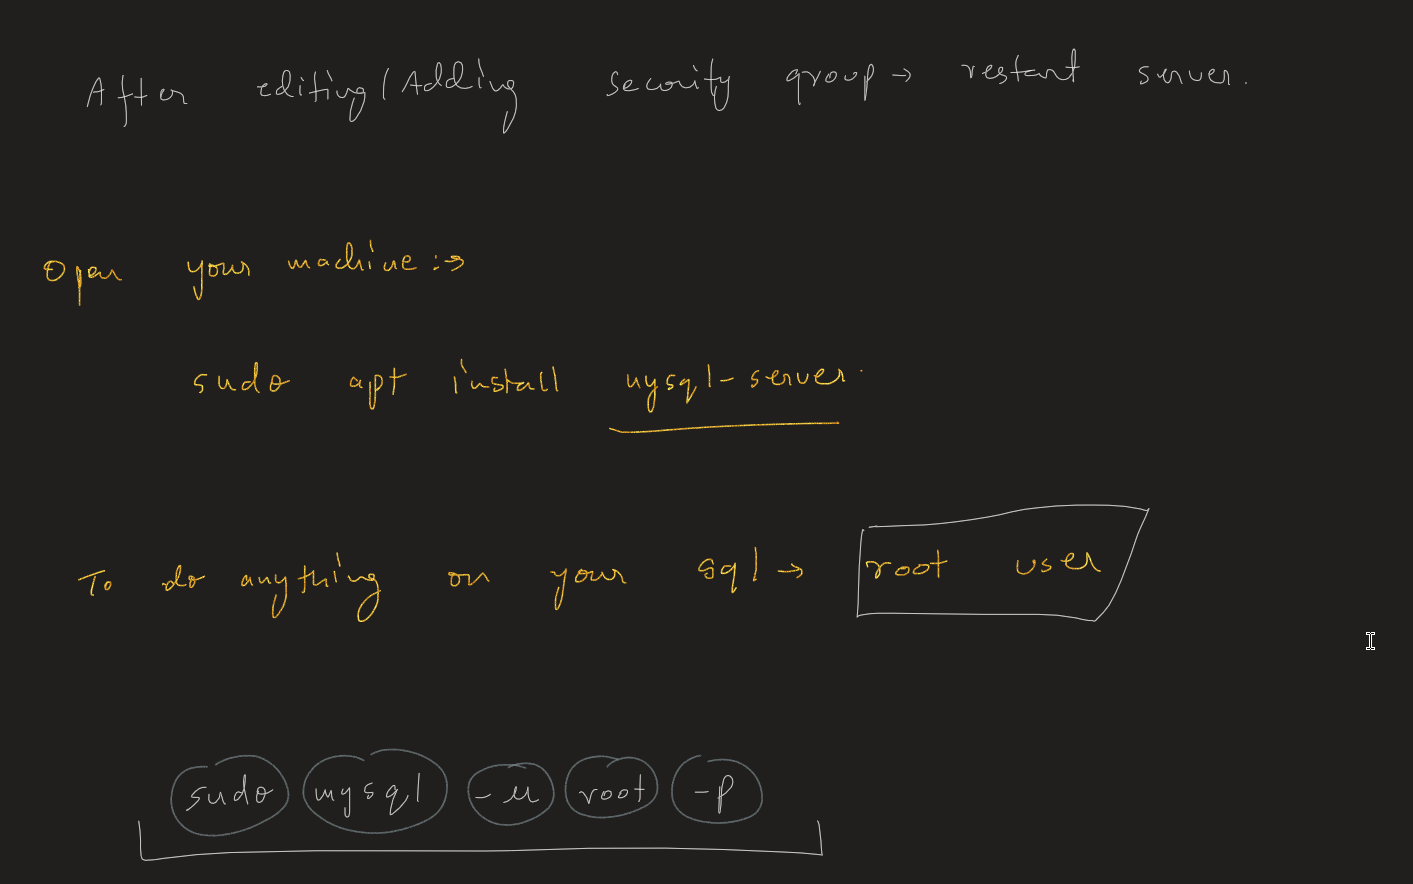 After editing/Adding security group → restart server.
Open your machine :→
sudo apt install mysql-server.
To do anything on your sql → root user
sudo mysql -u root -p